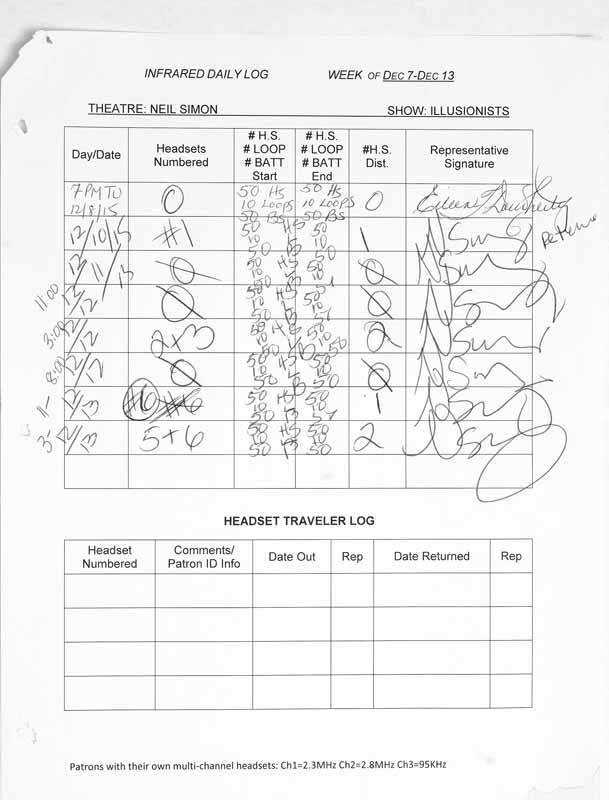 INFRARED DAILY LOG WEEK OF DEC 7-DEC 13
THEATRE: NEIL SIMON SHOW: ILLUSIONISTS
Day/Date Headsets Numbered # H.S. # LOOP # BATT Start # H.S. # LOOP # BATT End #H.S. Dist. Representative Signature
7 PM TU 12/8/15 0 50 HS 10 LOOPS 50 BS 50 HS 10 LOOPS 50 BS 0 Eileen
12/10/15 #1 50 HS 10 50 B 50 10 50 1
12/11/15 0 50 HS 10 50 B 50 10 0
11:00 12/12 0 50 HS 10 50 B 50 10 0
3:00 12/12 2+3 50 HS 10 50 50 10 50 2
8:00 12/12 0 50 HS 10 50 50 10 50 0
11- 12/13 #6 50 HS 10 50 B 50 10 1
3- 12/13 5+6 50 HS 10 50 B 50 10 50 2
HEADSET TRAVELER LOG
Headset Numbered Comments/ Patron ID Info Date Out Rep Date Returned Rep
Patrons with their own multi-channel headsets: Ch1=2.3MHz Ch2=2.8MHz Ch3=95KHz